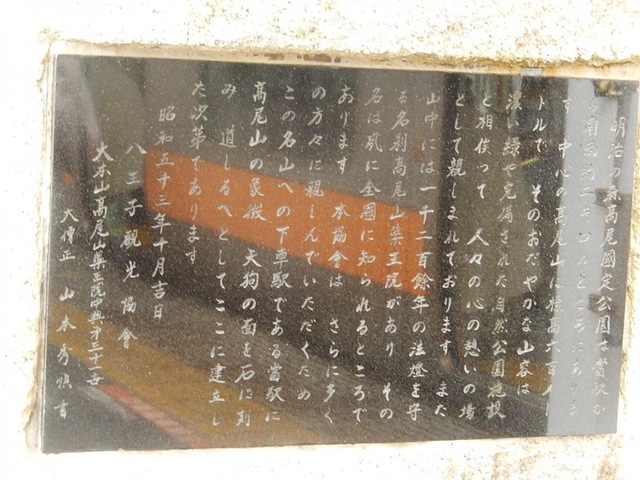 明治の森高尾国定公園は当駅か
ら南西約二キロのところにありま
す 中心の高尾山は標高六百メー
トルで そのおだやかな山容は
深い緑や完備された自然公園施設
と相俟って 人々の心の憩いの場
として親しまれております まだ
山中には一千二百餘年の法燈を守
る名刹高尾山薬王院があり その
名は夙に全國に知られるところで
あります 本協會は さらに多く
の方々に親しんでいただくため
この名山への下車駅である當駅に
高尾山の象徴 天狗の面を石に刻
み 道しるべとしてここに建立し
た次第であります
昭和五十三年十月吉日
八王子観光協會
大本山髙尾山薬王院中興第三十一世
大僧正 山本秀順 書